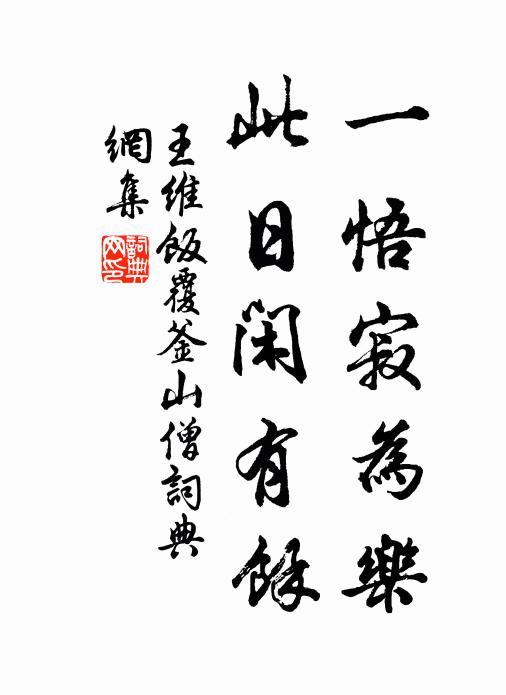 一悟寂為樂
此日閑有餘
王維飯覆釜山僧詞典
網集
詞典
网印